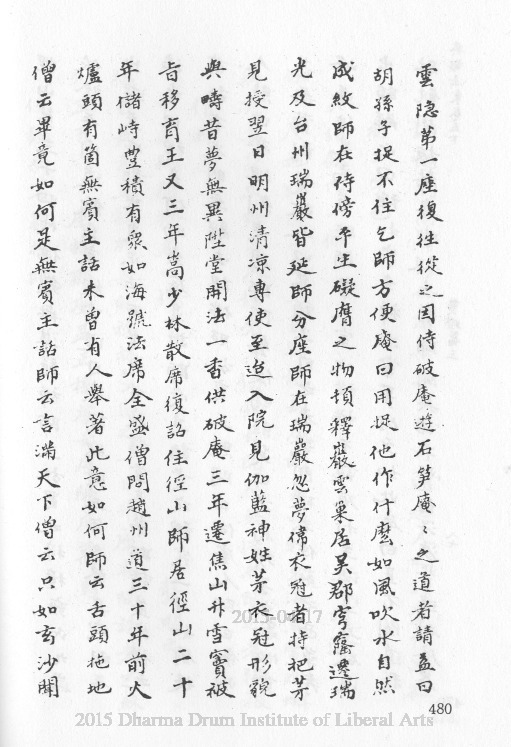 雲隐第一座復往從之因侍破庵遊石笋庵〻之道者請益曰
胡孫子捉不住乞師方便庵曰用捉他作什麽如風吹水自然
成紋師在侍傍平生礙膺之物頓釋巖雲巢居吴郡穹窿遷瑞
光及台州瑞巖皆延師分座師在瑞巖忽夢偉衣冠者持把茅
見授翌日明州清凉專使至迨入院見伽藍神姓茅衣冠形貌
與疇昔夢無異陞堂開法一香供破庵三年遷焦山升雪竇被
旨移育王又三年嵩少林散席復詔住徑山師居徑山二十
年儲峙豐積有衆如海號法席全盛僧問趙州道三十年前火
爐頭有箇無賓主話未曾有人舉著此意如何師云舌頭拖地
僧云畢竟如何是無賓主話師云言滿天下僧云只如玄沙聞
480
2015-04-17
2015 Dharma Drum Institute of Liberal Arts